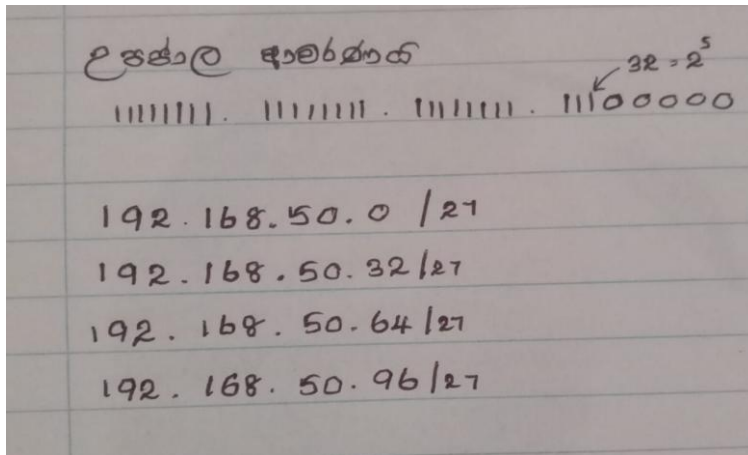 උපජාල ආවරණය
32 = 2^5
11111111. 11111111. 11111111. 11100000
192.168.50.0 /27
192.168.50.32/27
192.168.50.64/27
192.168.50.96/27